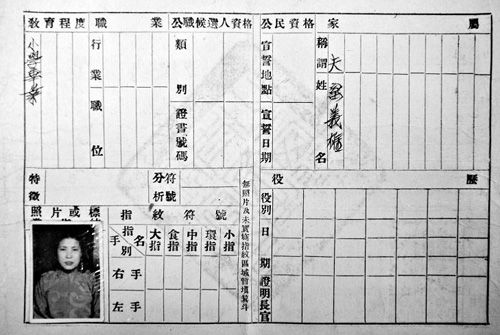 教育程度
小學畢業
職業
行業
職位
公職候選人資格
類別
證書號碼
公民資格
宣誓地點
宣誓日期
家屬
稱謂
姓名
夫
義
特徵
符號
分析
無照片及未實施指紋區域暫填箕斗
照片或
指紋符號
指別
名
手
大指
食指
中指
環指
小指
右手
左手
役歷
役別
日期
證明長官